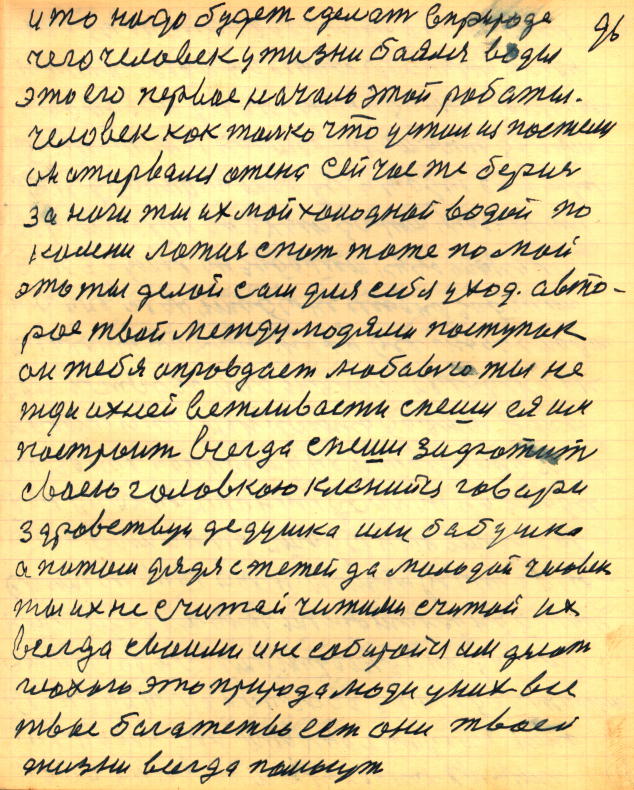 96
и што надо будет сделат в природе
чего человек у жизни баялся воды
это его первое начало этой работы.
человек как толко что устал из постели
он оторвался отена сейчас же берися
за ноги ты их мой холодной водой по
колени ложися спат тоже по мой
это ты делай сам для себя уход. авто-
рое твой между людями поступак
он тебя оправдает любавого ты не
жди ихней вежливасти спеши ся им
построит всегда спеши
своею головкою кланийся говари
здравствуй дедушка или бабушка
а потом дядя с тетей да молодой человек
ты их не считай чижими считай их
всегда своими и не собирайся им делат
плохого это природа люди у них все
твое багатство ест они твоей
жизни всегда помогут